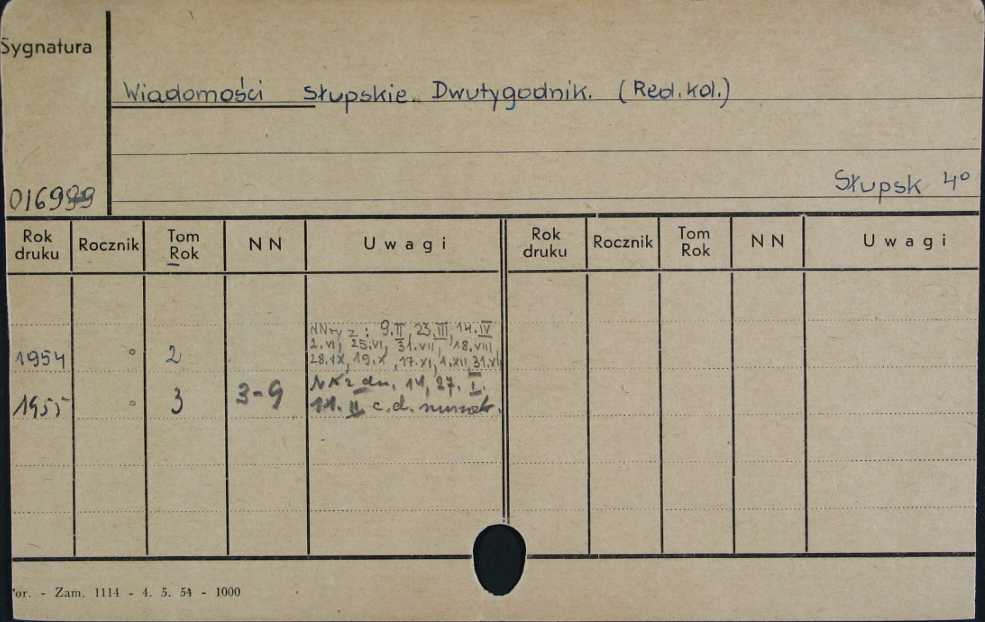 Sygnatura
Wiadomości Słupskie. Dwutygodnik. (Red. kol.)
Słupsk 4°
016999
Rok druku Rocznik Tom Rok NN Uwagi Rok druku Rocznik Tom Rok NN Uwagi
NN-ry z: 9.II, 23.III, 14.IV
2.VI, 25.VI, 31.VII, 18.VIII
1954 ° 2 28.IX, 19.X, 17.XI, 1.XII, 31.XII
NN z dn. 14, 27. I.
1955 ° 3 3-9 11. II c.d. numer.
or. - Zam. 1114 - 4. 5. 54 - 1000